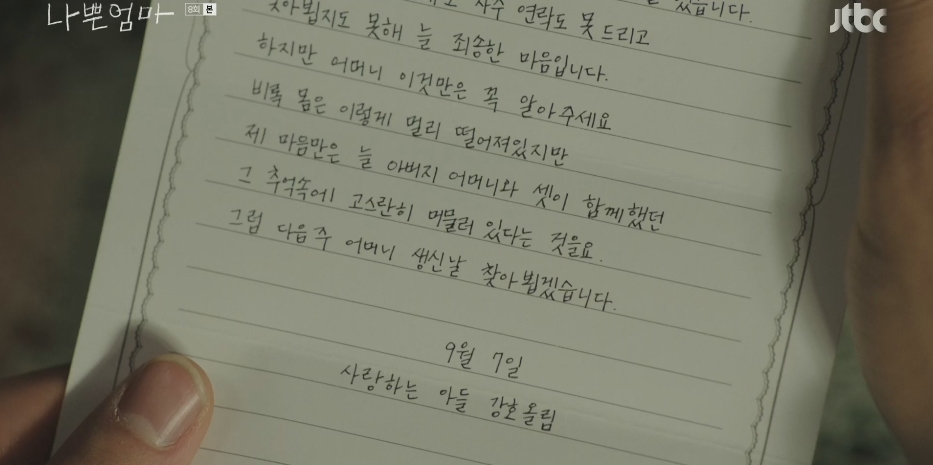 나쁜엄마 8회 본
jtbc
자주 연락도 못 드리고
찾아뵙지도 못해 늘 죄송한 마음입니다.
하지만 어머니 이것만은 꼭 알아주세요
비록 몸은 이렇게 멀리 떨어져있지만
제 마음만은 늘 아버지 어머니와 셋이 함께했던
그 추억속에 고스란히 머물러 있다는 것을요.
그럼 다음주 어머니 생신날 찾아뵙겠습니다.
9월 7일
사랑하는 아들 강호올림